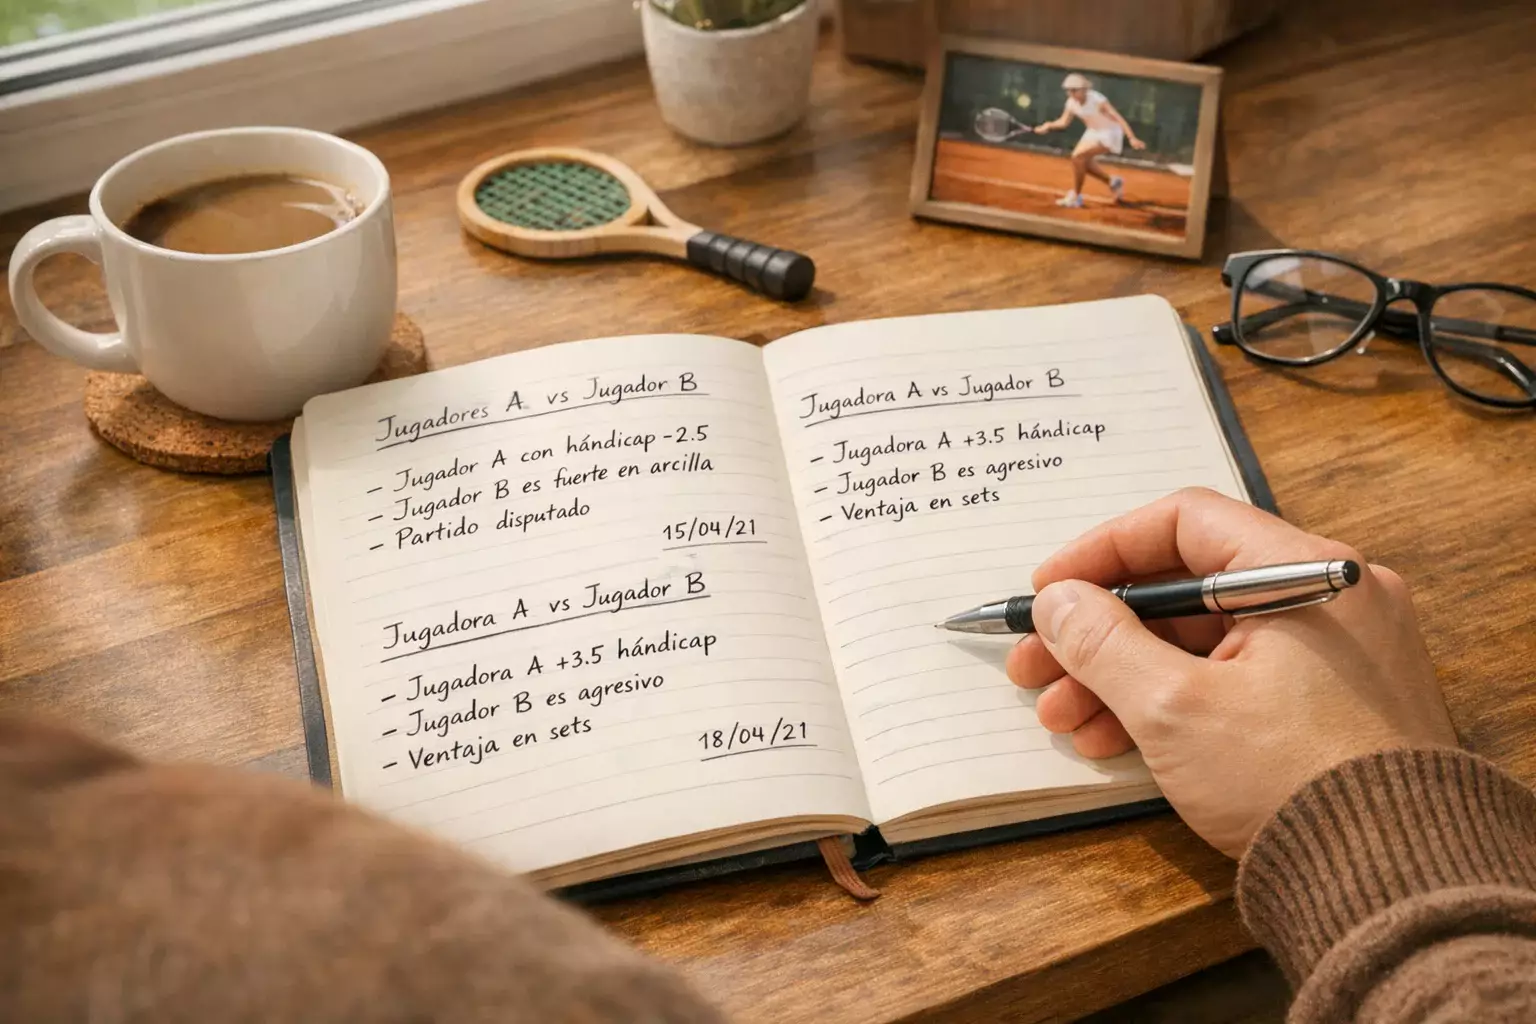 Jugadores A vs Jugador B
- Jugador A con hándicap -2.5
- Jugador B es fuerte en arcilla
- Partido disputado
15/04/21
Jugadora A vs Jugador B
- Jugadora A +3.5 hándicap
- Jugador B es agresivo
- Ventaja en sets
18/04/21
Jugadora A vs Jugador B
- Jugadora A +3.5 hándicap
- Jugador B es agresivo
- Ventaja en sets